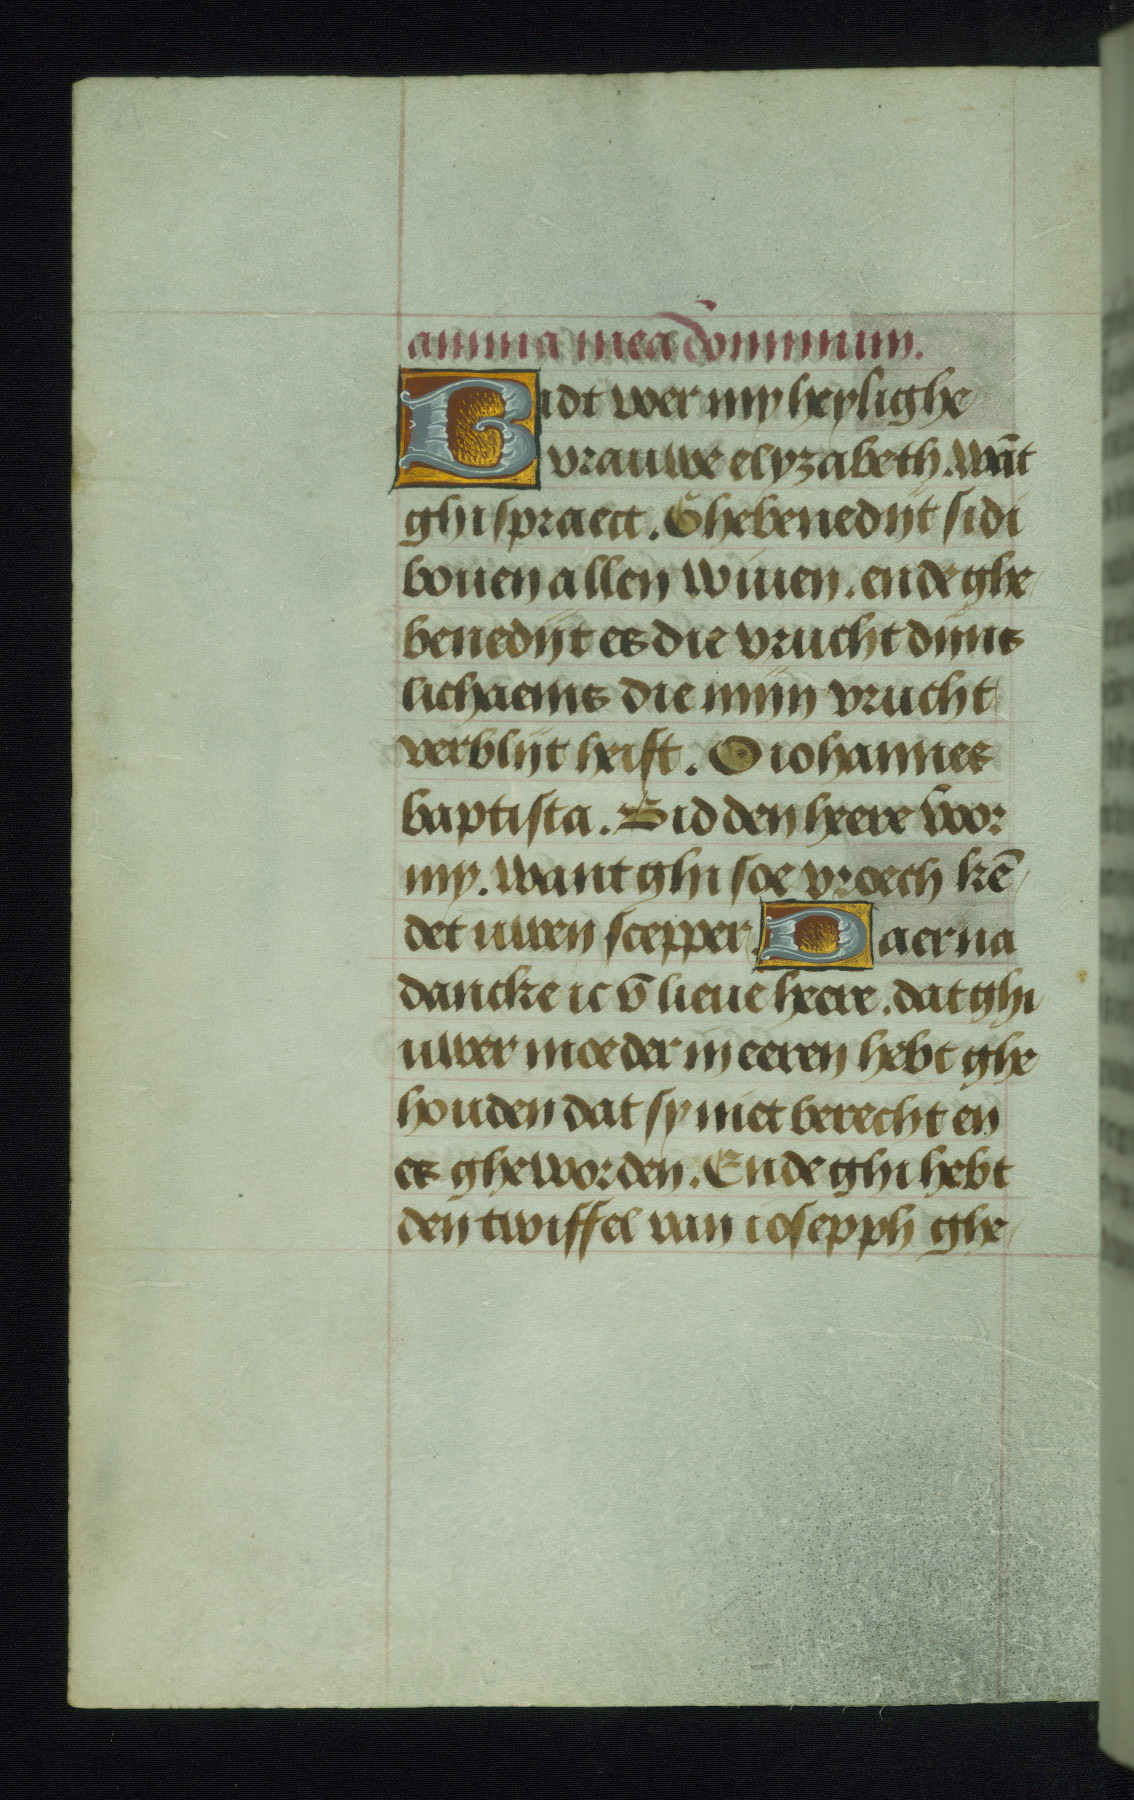 anima mea dominum.
Bidt voer my heylighe
vrauwe elyzabeth. wāt
ghi spraect. Ghebenedijt sidi
bouen allen wiuen. ende ghe
benedijt es die vrucht dijns
lichaems die mijn vrucht
verblijt heift. O iohannes
baptista. Bid den heere voor
my. want ghi soe vroech kē
det uwen scepper. Daerna
dancke ic v̄ lieue heere. dat ghi
uwer moeder in eeren hebt ghe
houden dat sy niet berecht en
es gheworden. Ende ghi hebt
den twiffel van iosepph ghe